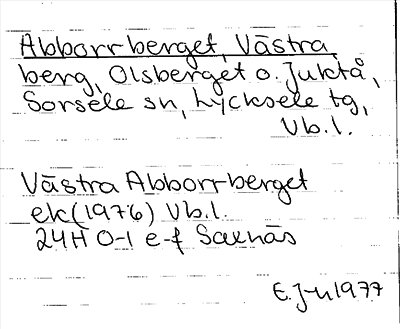 Abborrberget, Västra
berg, Olsberget o. Juktå,
Sorsele sn, Lycksele tg,
Vb.l.
Västra Abborrberget
ek (1976) Vb.l.
24H 0-1 e-f Saxnäs
E.J-n 1977